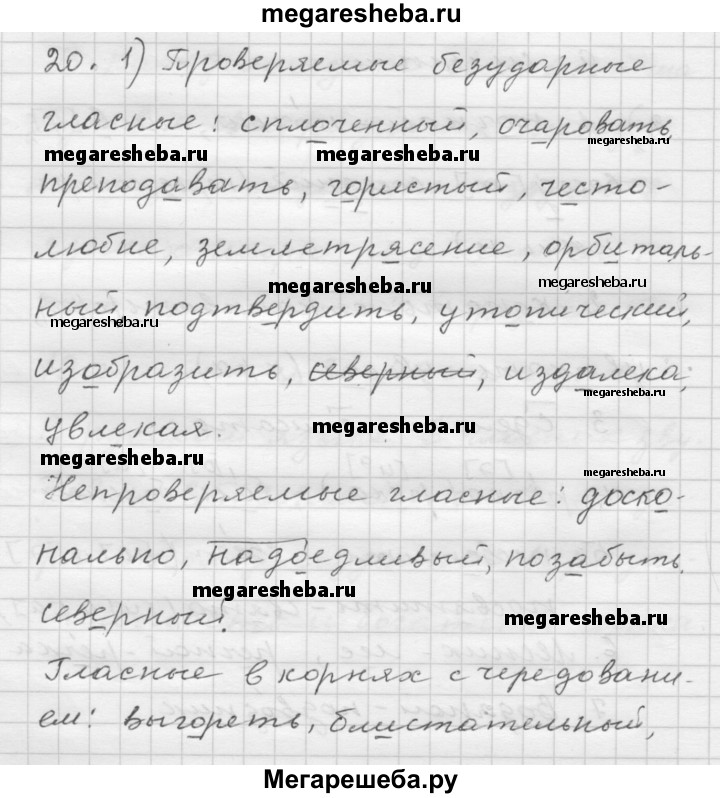 megaresheba.ru
20. 1) Проверяемые безударные
гласные: сплоченный, очаровать,
megaresheba.ru megaresheba.ru megaresheba.ru
преподавать, гористый, често-
любие, землетрясение, орбиталь-
megaresheba.ru megaresheba.ru
ный подтвердить, утопический,
megaresheba.ru
изобразить, северный, издалека,
megaresheba.ru
увлекая.
megaresheba.ru
megaresheba.ru
Непроверяемые гласные: доско-
нально, надоедливый, позабыть,
megaresheba.ru
северный.
megaresheba.ru
Гласные в корнях с чередовани-
ем: выгореть, блистательный,
Мегарешеба.ру